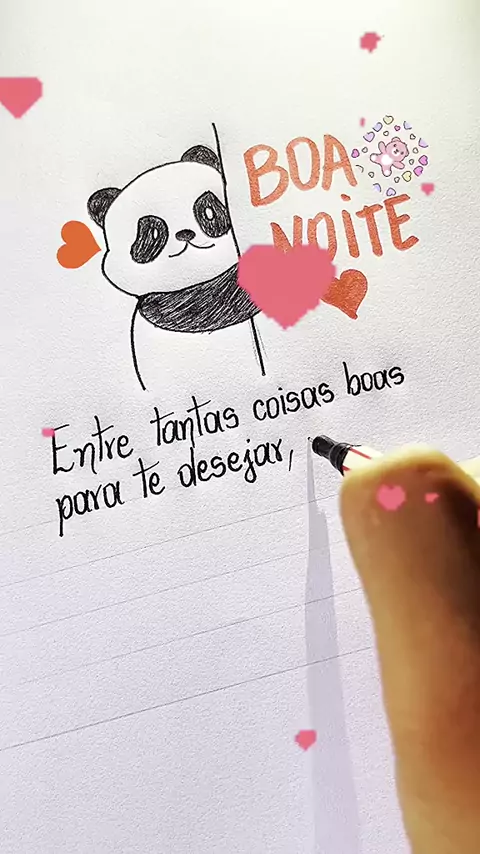 BOA
NOITE
Entre tantas coisas boas
para te desejar,